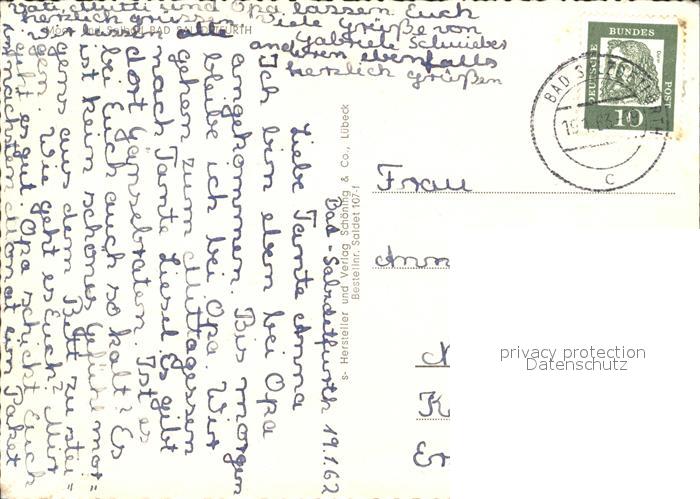 Bad-Salzdetfurth 19.1.62
Liebe Tante Anna
Ich bin eben bei Opa
angekommen. Bis morgen
bleibe ich bei Opa. Wir alle
gehen zum Mittagessen
nach Tante Liesel Es gibt
dort Gänsebraten. Ist es
bei Euch auch so kalt? Es
ist kein schönes Gefühl mor=
gens aus dem Bett zu stei=
gen. Wie geht es Euch? Mir
geht es gut. Opa schickt Euch
im nächsten Monat ein Paket
Vati, Mutti und Opa lassen Euch
herzlich grüssen
Viele Grüße von
Gabriele
anderen ebenfalls
herzlich grüßen
BAD SALZDETFURTH
s- Hersteller und Verlag Schöning & Co., Lübeck
Bestellnr. Saldet 107-f
DEUTSCHE
BUNDES
POST
10
BAD SALZDETFURTH
c
Frau
Ann
K
privacy protection
Datenschutz